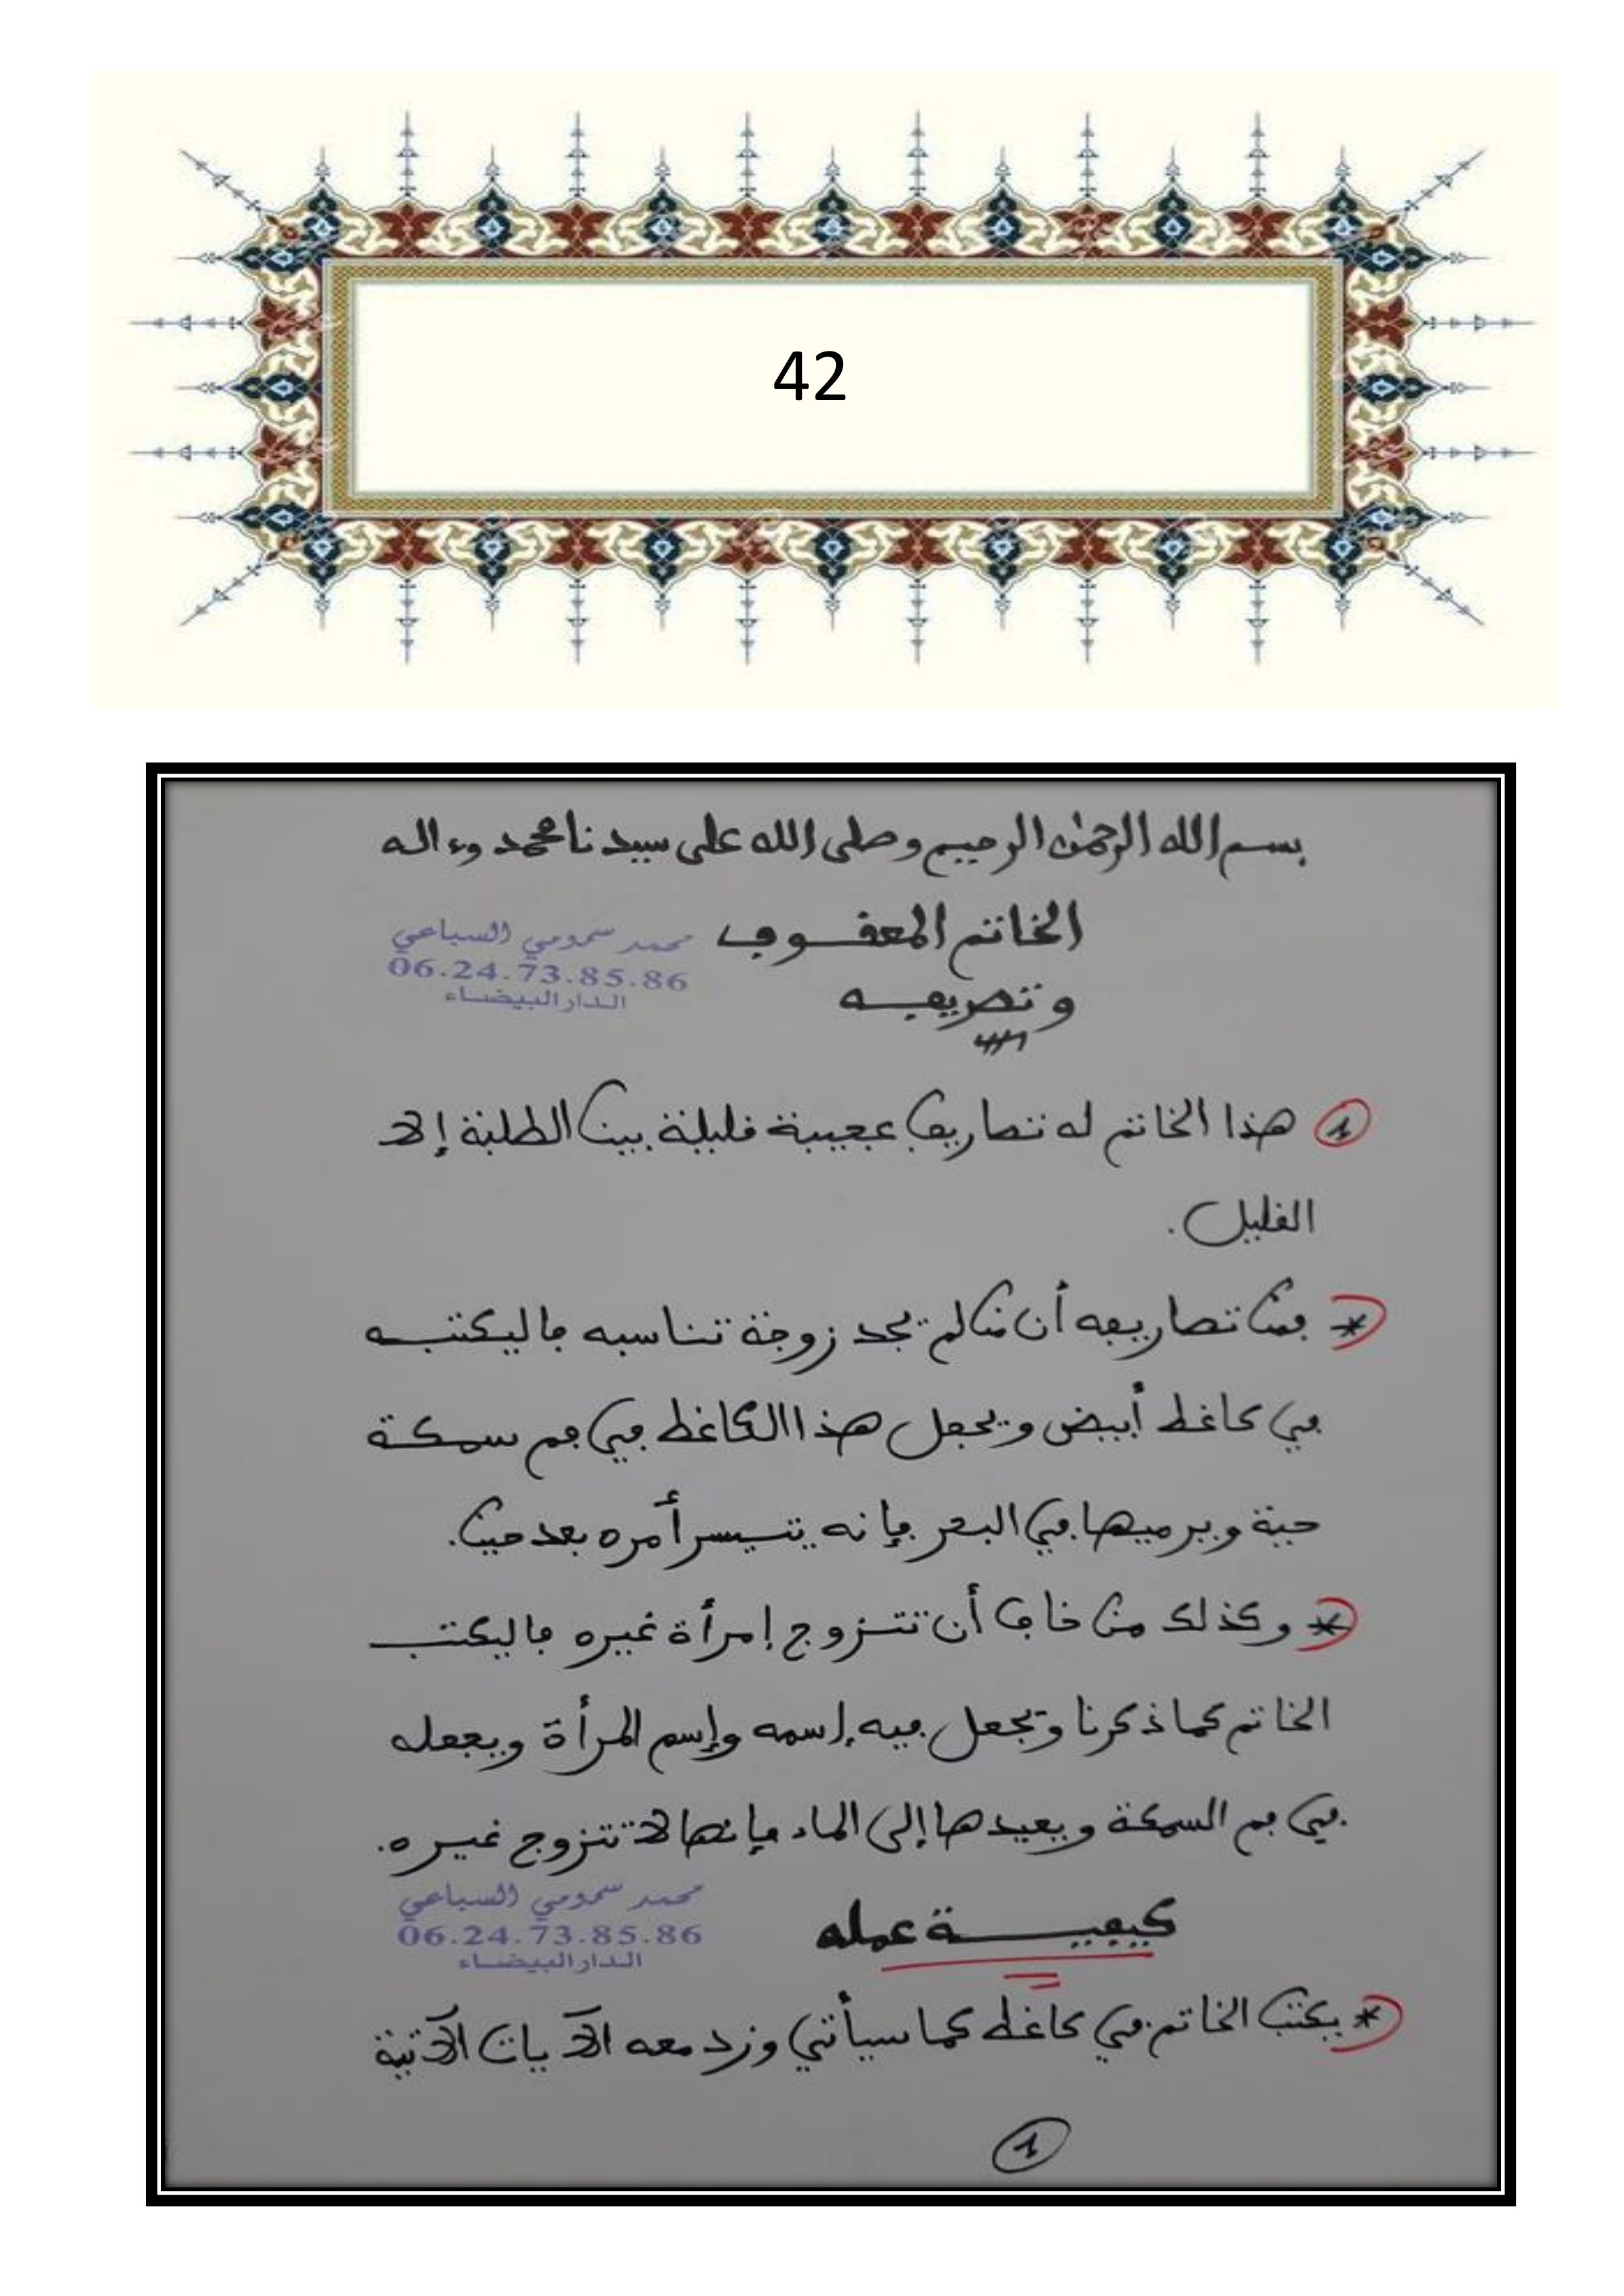 42
بسم الله الرحمٰن الرحيم وصلى الله على سيدنا محمد وءاله
الخاتم المعقوف
محمد سمومي السباعي
06.24.73.85.86
الدار البيضاء
وتصريفه
1 هذا الخاتم له تصاريف عجيبة قليلة بين الطلبة إلا
القليل.
* فمن تصاريفه أن من لم يجد زوجة تناسبه فاليكتبه
في كاغط أبيض ويجعل هذا الكاغط في فم سمكة
حية ويرميها في البحر فإنه يتيسر أمره بعد حين.
* وكذلك من خاف أن تتزوج إمرأة غيره فاليكتب
الخاتم كما ذكرنا ويجعل فيه إسمه وإسم المرأة ويجعله
في فم السمكة ويعيدها إلى الماء فإنها لا تتزوج غيره.
محمد سمومي السباعي
06.24.73.85.86
الدار البيضاء
كيفية عمله
* يكتب الخاتم في كاغط كما سيأتي وزد معه الآيات الآتية
1